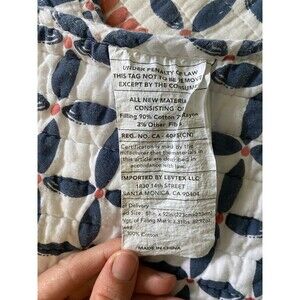 UNDER PENALTY OF LAW
THIS TAG NOT TO BE REMOVED
EXCEPT BY THE CONSUMER
ALL NEW MATERIAL
CONSISTING OF
Filling 90% Cotton Rayon
2% Other
REG. NO. CA - (CN)
Certification is made by the
manufacturer that the materials in
this article are described in
accordance with law.
IMPORTED BY LEVTEX LLC
1830 14th STREET
SANTA MONICA, CA 90404
Delivery
Size, x
of Filling
100% Cotton
MADE IN CHINA